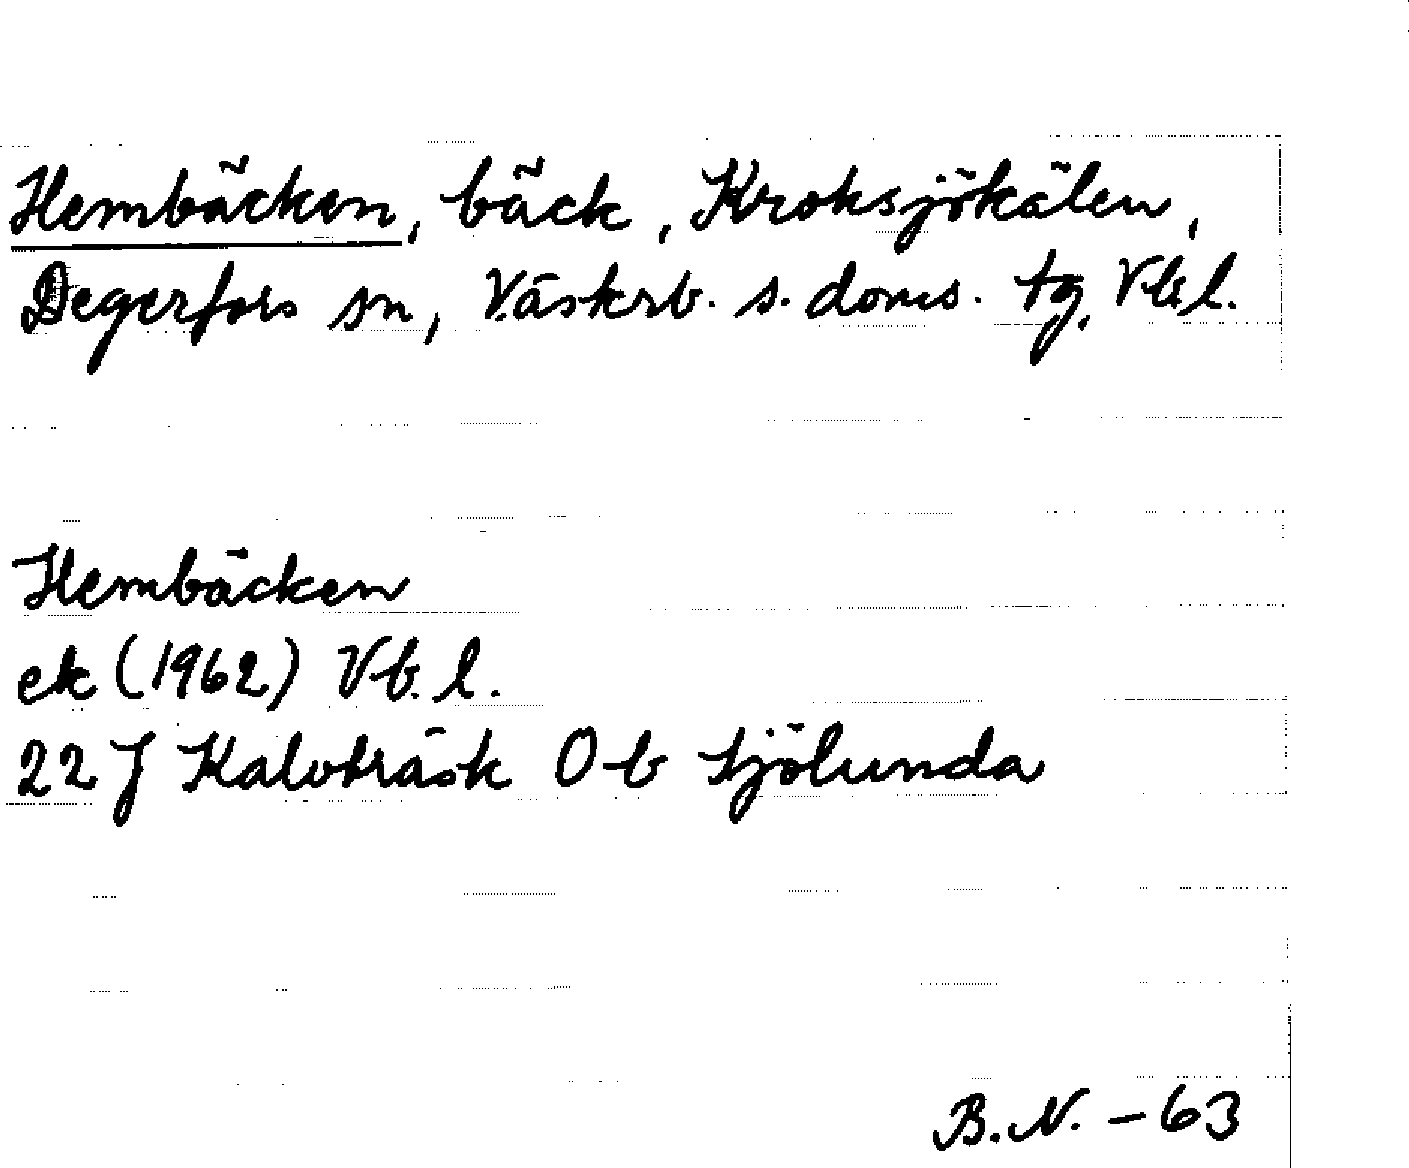 Hembäcken, bäck, Kroksjökälen,
Degerfors sn, Västerb. s. doms. tg, Vb.l.
Hembäcken
ek (1962) Vb. l.
22 J Kalvträsk 0 b Sjölunda
B.N. - 63